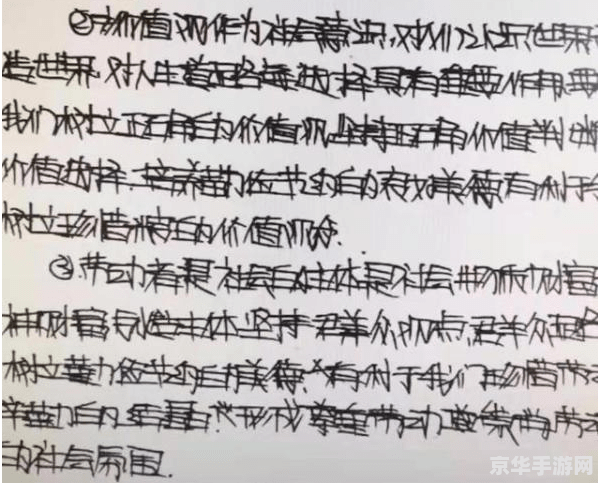 ②价值观作为社会意识,对人们认识世界
造世界,对人生道路的选择具有重要作用要
我们树立正确的价值观坚持正确价值判断
价值选择.培养勤俭节约的良好美德有利于
树立珍惜粮食的价值观念.
③劳动者是社会的主体是社会物质财富
神财富创造主体.坚持群众观点,群众路
树立勤俭节约的美德.有利于我们珍惜劳动
辛勤的结晶尊重劳动
的社会氛围.
京华手游网